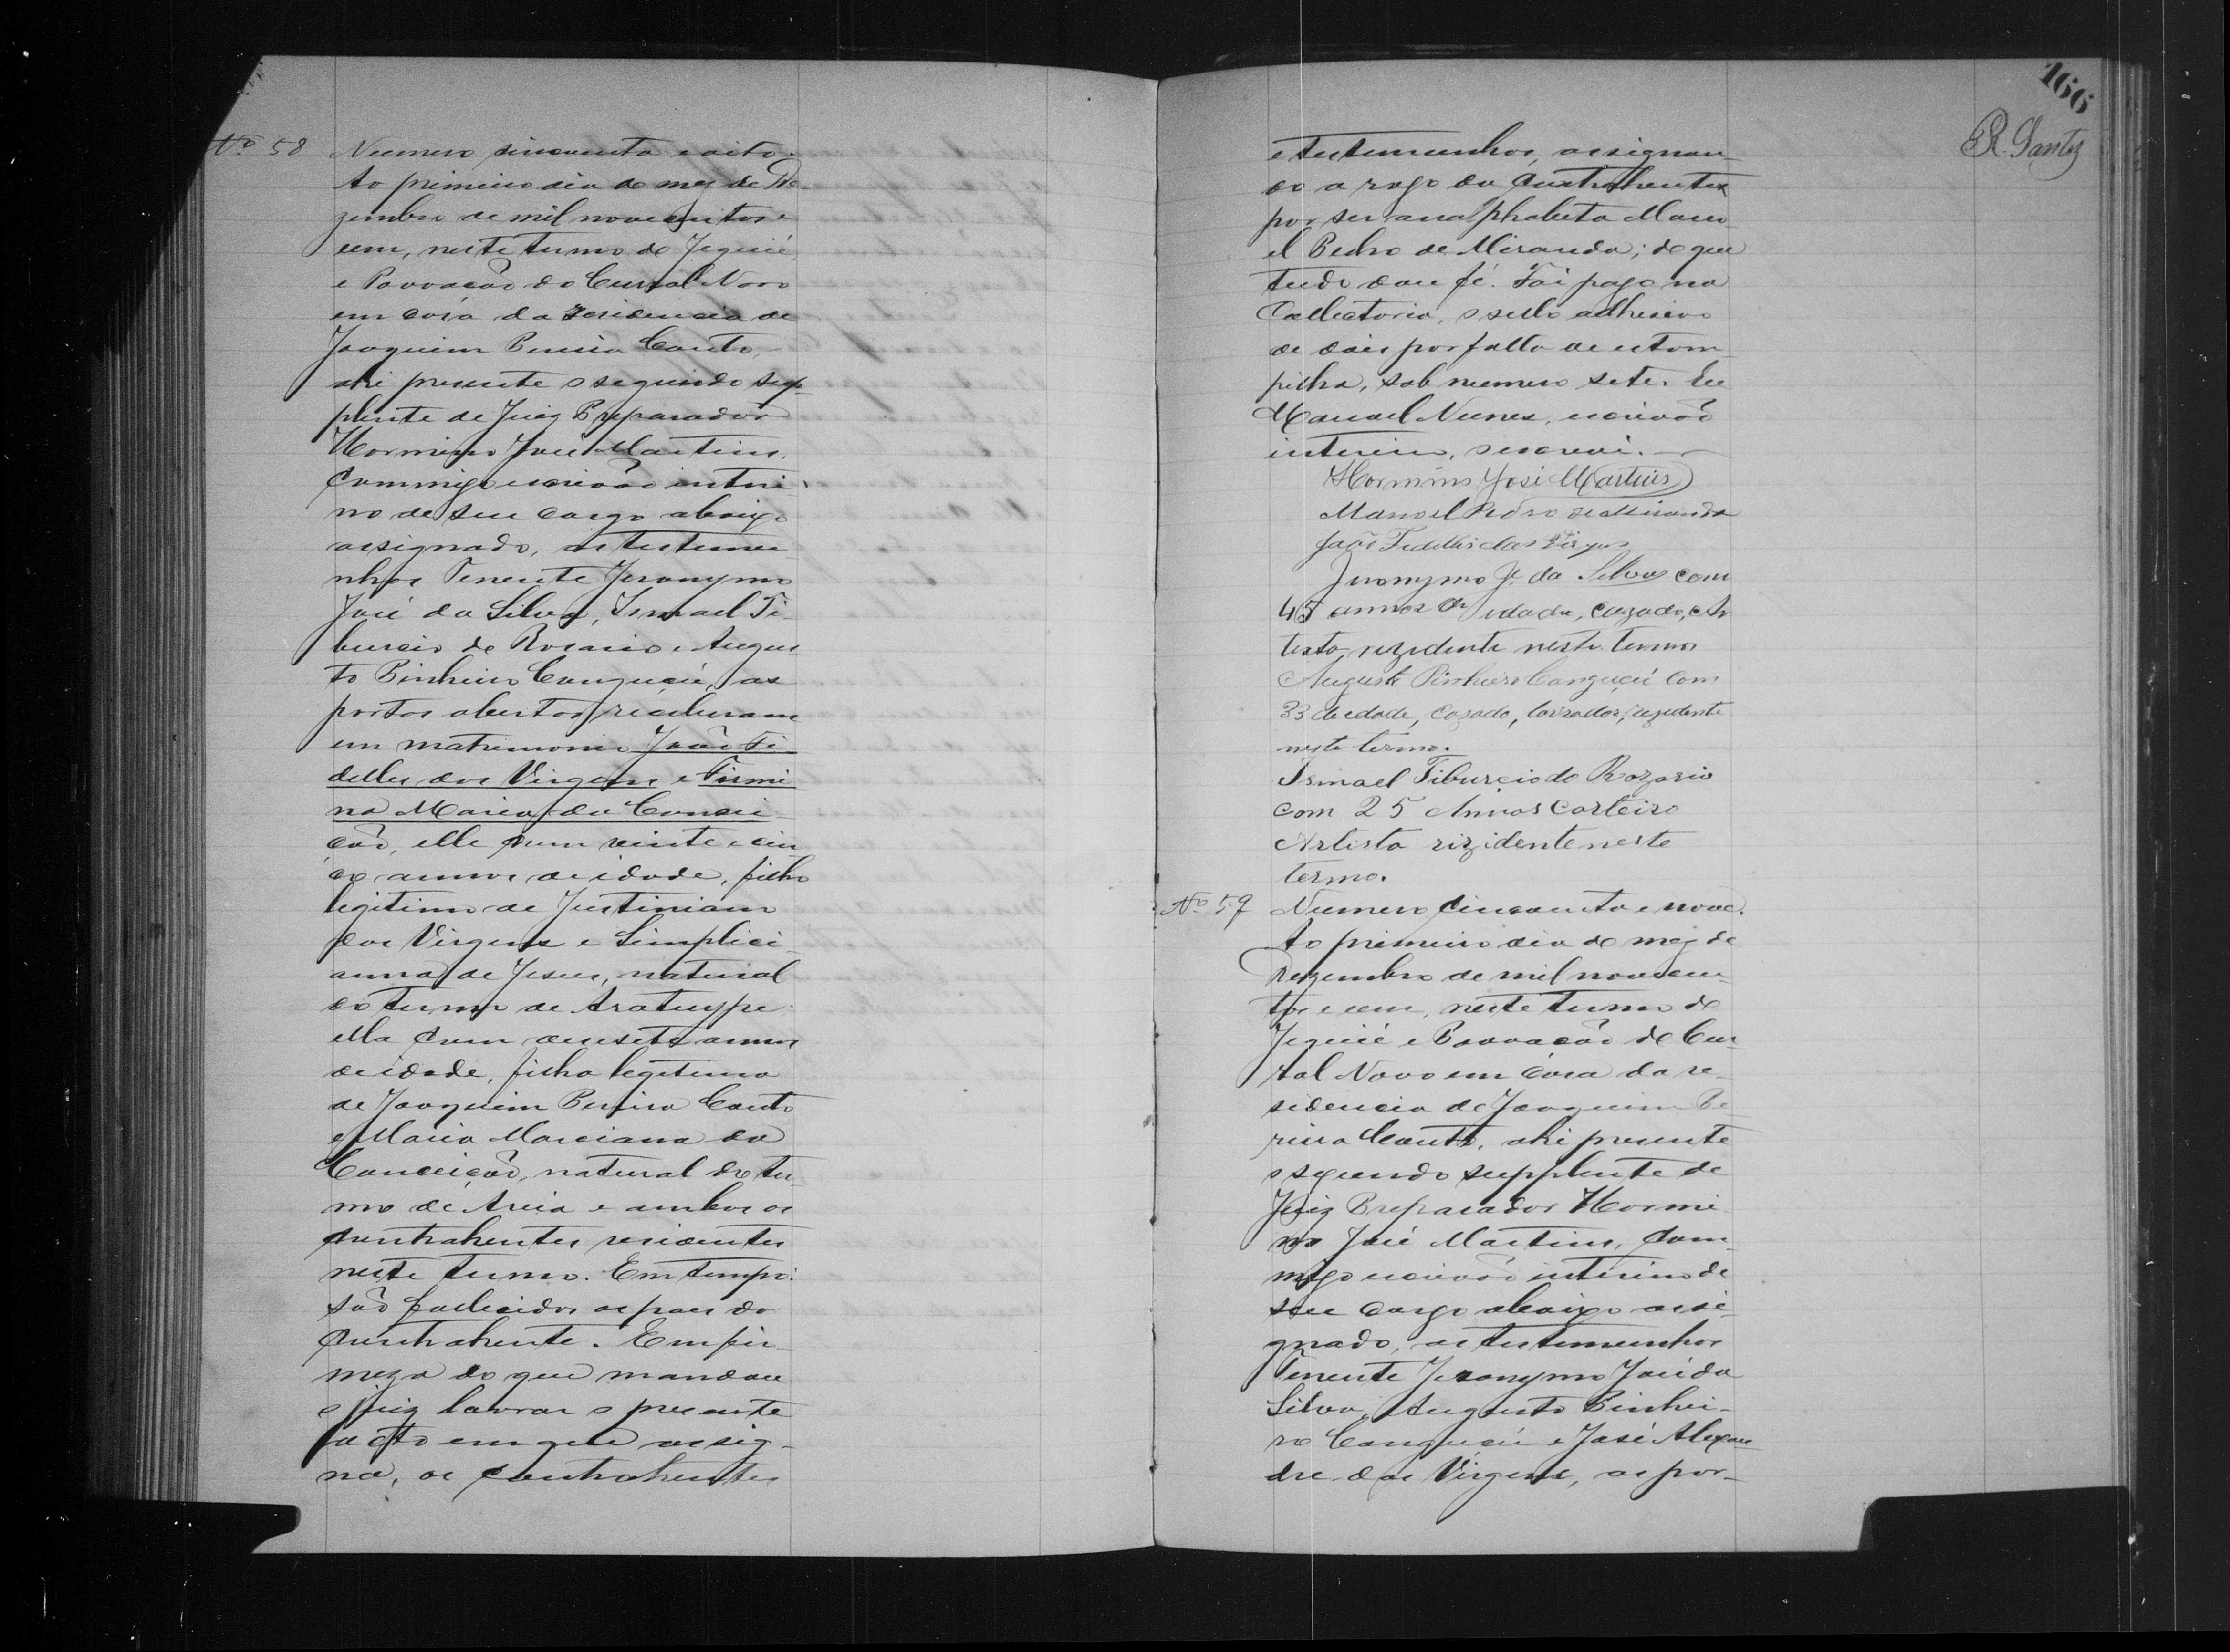 Nº 58
Numero cincoenta e oito.
Ao primeiro dia do mez de De-
zembro de mil novecentos e
cem, neste termo de Jequié
e Povoação do Curral Novo
em casa da residencia de
Joaquim Pereira Couto,
ahi presente o segundo sup-
plente de Juiz Preparador
Hormino José Martins,
commigo escrivão interi-
no de seu cargo abaixo
assignado, as testemu
nhas Tenente Jeronymo
José da Silva, Ismael Ti-
burcio do Rosario e Augus
to Pinheiro Canguçú, as
portas abertas, receberam
em matrimonio João Fi-
delles das Virgens e Firmi
na Maria da Concei-
ção, elle com vinte e cin
co annos de idade, filho
legitimo de Justiniano
das Virgens e Simplici
anna de Jesus, natural
do termo de Aratuype
ella com desesete annos
de idade, filha legitima
de Joaquim Pereira Couto
e Maria Marciana da
Conceição, natural do ter
mo de Areia e ambos os
contrahentes residentes
neste termo. Em tempo:
são fallecidos os paes do
contrahente. Em fir-
meza do que mandou
o juiz lavrar o presente
acto em que assig-
na, os contrahentes
166
R. Dantas
e testemunhas, assignan-
do a rogo da contrahente
por ser analphabeta Mano
el Pedro de Miranda; do que
tudo dou fé. Foi pago na
Collectoria, o sello adhesivo
de dois por falta de estam-
pilha, sob numero sete. Eu
Manoel Nunes, escrivão
interino, o escrevi.
Hormino José Martins
Manoel Pedro de Miranda
João Fidellis das Virgens
Jeronymo Je. da Silva com
45 annos de idade, cazado, Ar
tista, rezidente neste termo
Augusto Pinheiro Canguçú com
33 de edade, cazado, lavrador, rezidente
neste termo.
Ismael Tiburcio do Rozario
com 25 Annos Corteiro
Artista rizidente neste
termo.
Nº 59
Numero cincoenta e nove.
Ao primeiro dia do mez de
Dezembro de mil novecen-
tos e cem, neste termo de
Jequié e Povoação do Cur
ral Novo em casa da re-
sidencia de Joaquim Pe-
reira Couto, ahi presente
o segundo supplente de
Juiz Preparador Hormi
no José Martins, com-
migo escrivão interino de
seu cargo abaixo assi-
gnado, as testemunhas
Tenente Jeronymo José da
Silva, Augusto Pinhei-
ro Canguçú e José Alexan
dre das Virgens, as por-